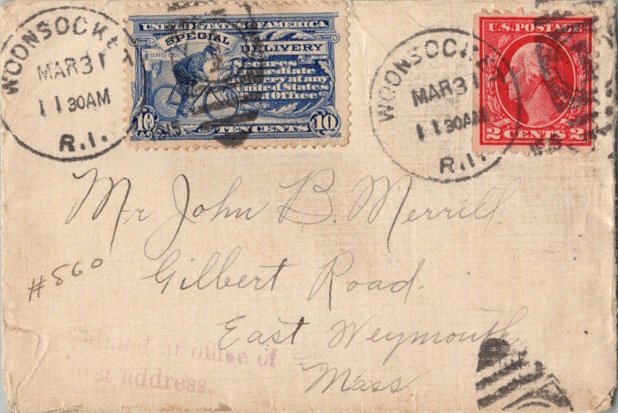 WOONSOCKET
MAR 31
11 30AM
R.I.
UNITED STATES OF AMERICA
SPECIAL DELIVERY
Secures
Immediate
Delivery at any
United States
Post Office
10 TEN CENTS 10
WOONSOCKET
MAR 31
11 30AM
R.I.
U.S. POSTAGE
2 CENTS 2
Mr. John B. Merrill.
Gilbert Road.
#860
East Weymouth
Mass
at office of
address.